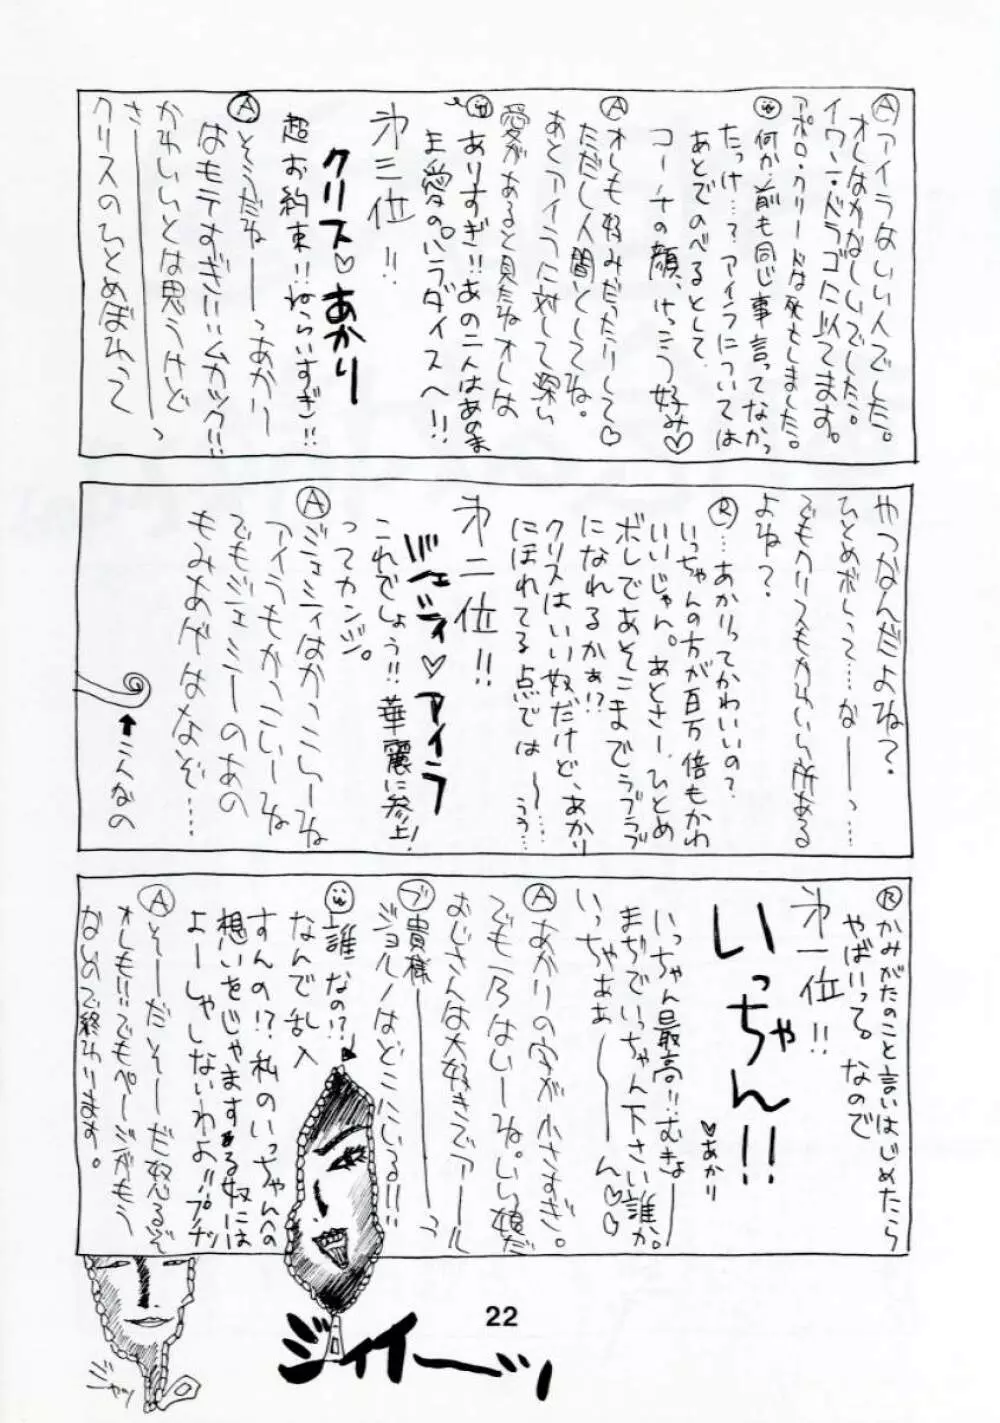 Ⓐアイラはいい人でした。
オレはかなしいでした。
イワン・ドラゴに似てます。
アポロ・クリードは死亡しました。
何か、前も同じ事言ってなかっ
たっけ…？アイラについては
あとでのべるとして、
コーチの顔、けっこう好み♡
Ⓐオレも好みだったりして♡
ただし人間としてね。
あとアイラに対して深い
愛があると見たねオレは
ありすぎ!!あの二人はあのまま
愛のパラダイスへ!!
第三位!!
クリス♡あかり
超お約束!!ねらいすぎ!!
Ⓐそうだねーーっあかり
はモテすぎ!!!ムカック!!
かわいいとは思うけど
さーーーーっ
クリスのひとめぼれって
やつなんだよね？
ひとめボレって…なーーっ…
でもクリスもかわいい所ある
よね？
Ⓡ…あかりってかわいいの？
いっちゃんの方が百万倍もかわ
いいじゃん。あとさー、ひとめ
ボレであそこまでラブラブ
になれるかぁ!?
クリスはいい奴だけど、あかり
にほれてる点では〜…うぅ…
第二位!!
ジェシィ♡アイラ
これでしょう!!華麗に参上!
ってカンジ。
Ⓐジェシィはかっこいーね
アイラもかっこいーね
でもジェシーのあの
もみあげはなぞ…
↑こんなの
Ⓡかみがたのこと言いはじめたら
やばいってる。なので
第一位!!
いっちゃん!!
♡あかり
いっちゃん最高!!むきょーーー
まぢでいっちゃん下さい誰か。
いっちゃぁぁーーーん♡♡
Ⓐあかりの字が小さすぎ。
でも一乃はいーね。いい娘だ
おじさんは大好きでアール
ブ貴様ーーーーっ
ジョルノはどこにいる!!!
誰なの!?
なんで乱入
すんの!?私のいっちゃんへの
想いをじゃまする奴には
よーしゃしないわよ!!プチッ
Ⓐそーだそーだ怒るぞ
オレも!!!でもページがもう
ないので終わります。
22
ジィイーーッ
ジャッ